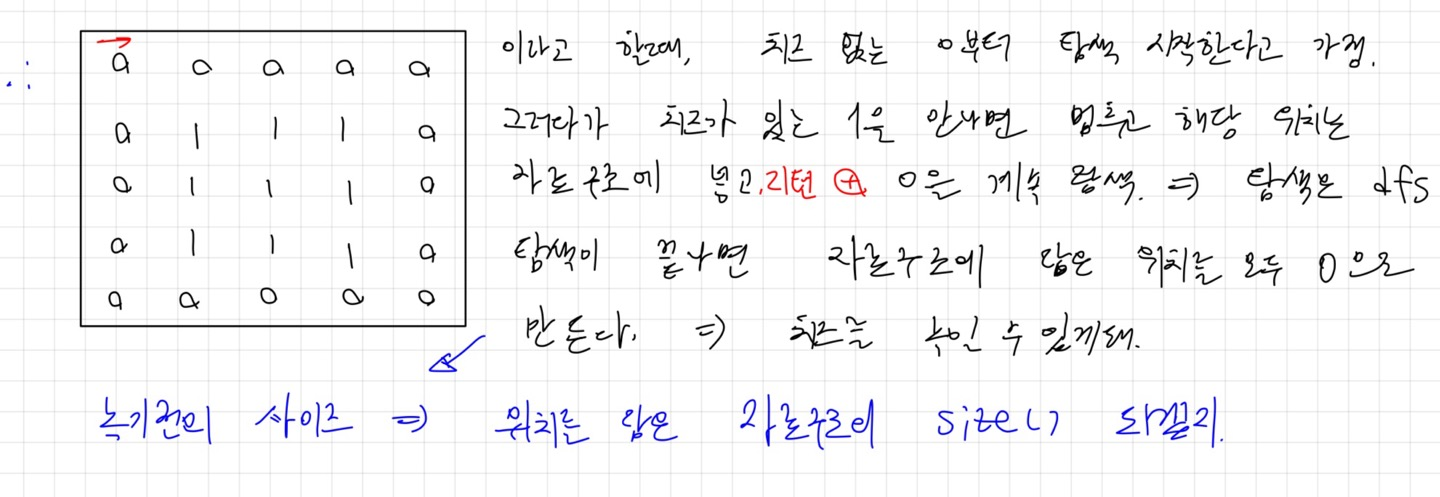 ∴
0 0 0 0 0
0 1 1 1 0
0 1 1 1 0
0 1 1 1 0
0 0 0 0 0
이라고 할때, 치즈 없는 0부터 탐색 시작한다고 가정.
그러다가 치즈가 있는 1을 만나면 멈추고 해당 위치는
자료구조에 넣고,리턴 ⊕ 0은 계속 탐색. ⇒ 탐색은 dfs
탐색이 끝나면 자료구조에 담은 위치를 모두 0으로
만든다. ⇒ 치즈를 녹일 수 있게돼.
녹기전의 사이즈 ⇒ 위치를 담은 자료구조의 size()